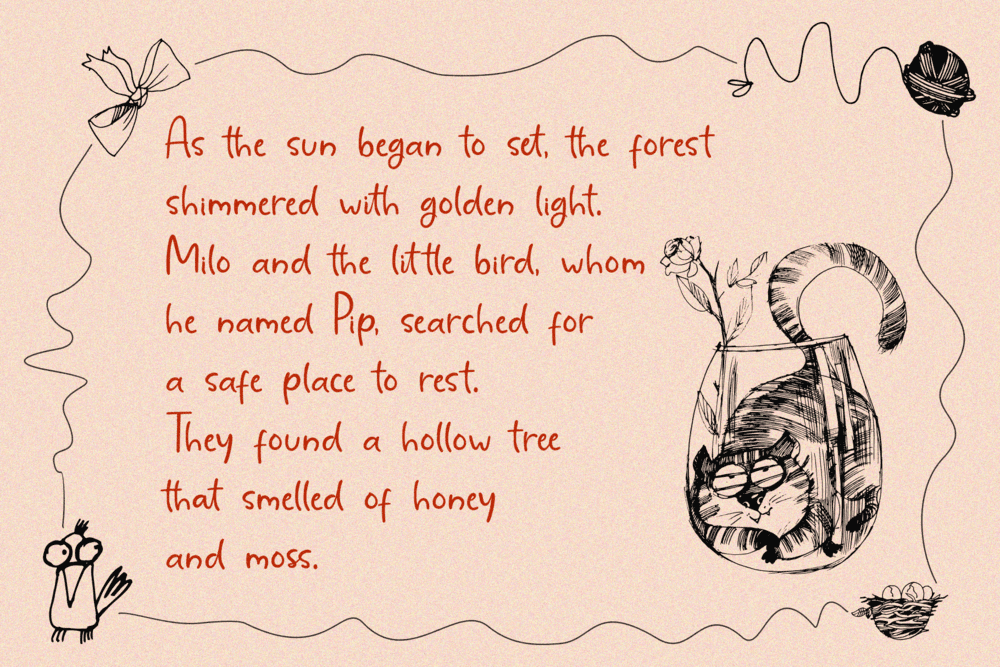 As the sun began to set, the forest
shimmered with golden light.
Milo and the little bird, whom
he named Pip, searched for
a safe place to rest.
They found a hollow tree
that smelled of honey
and moss.